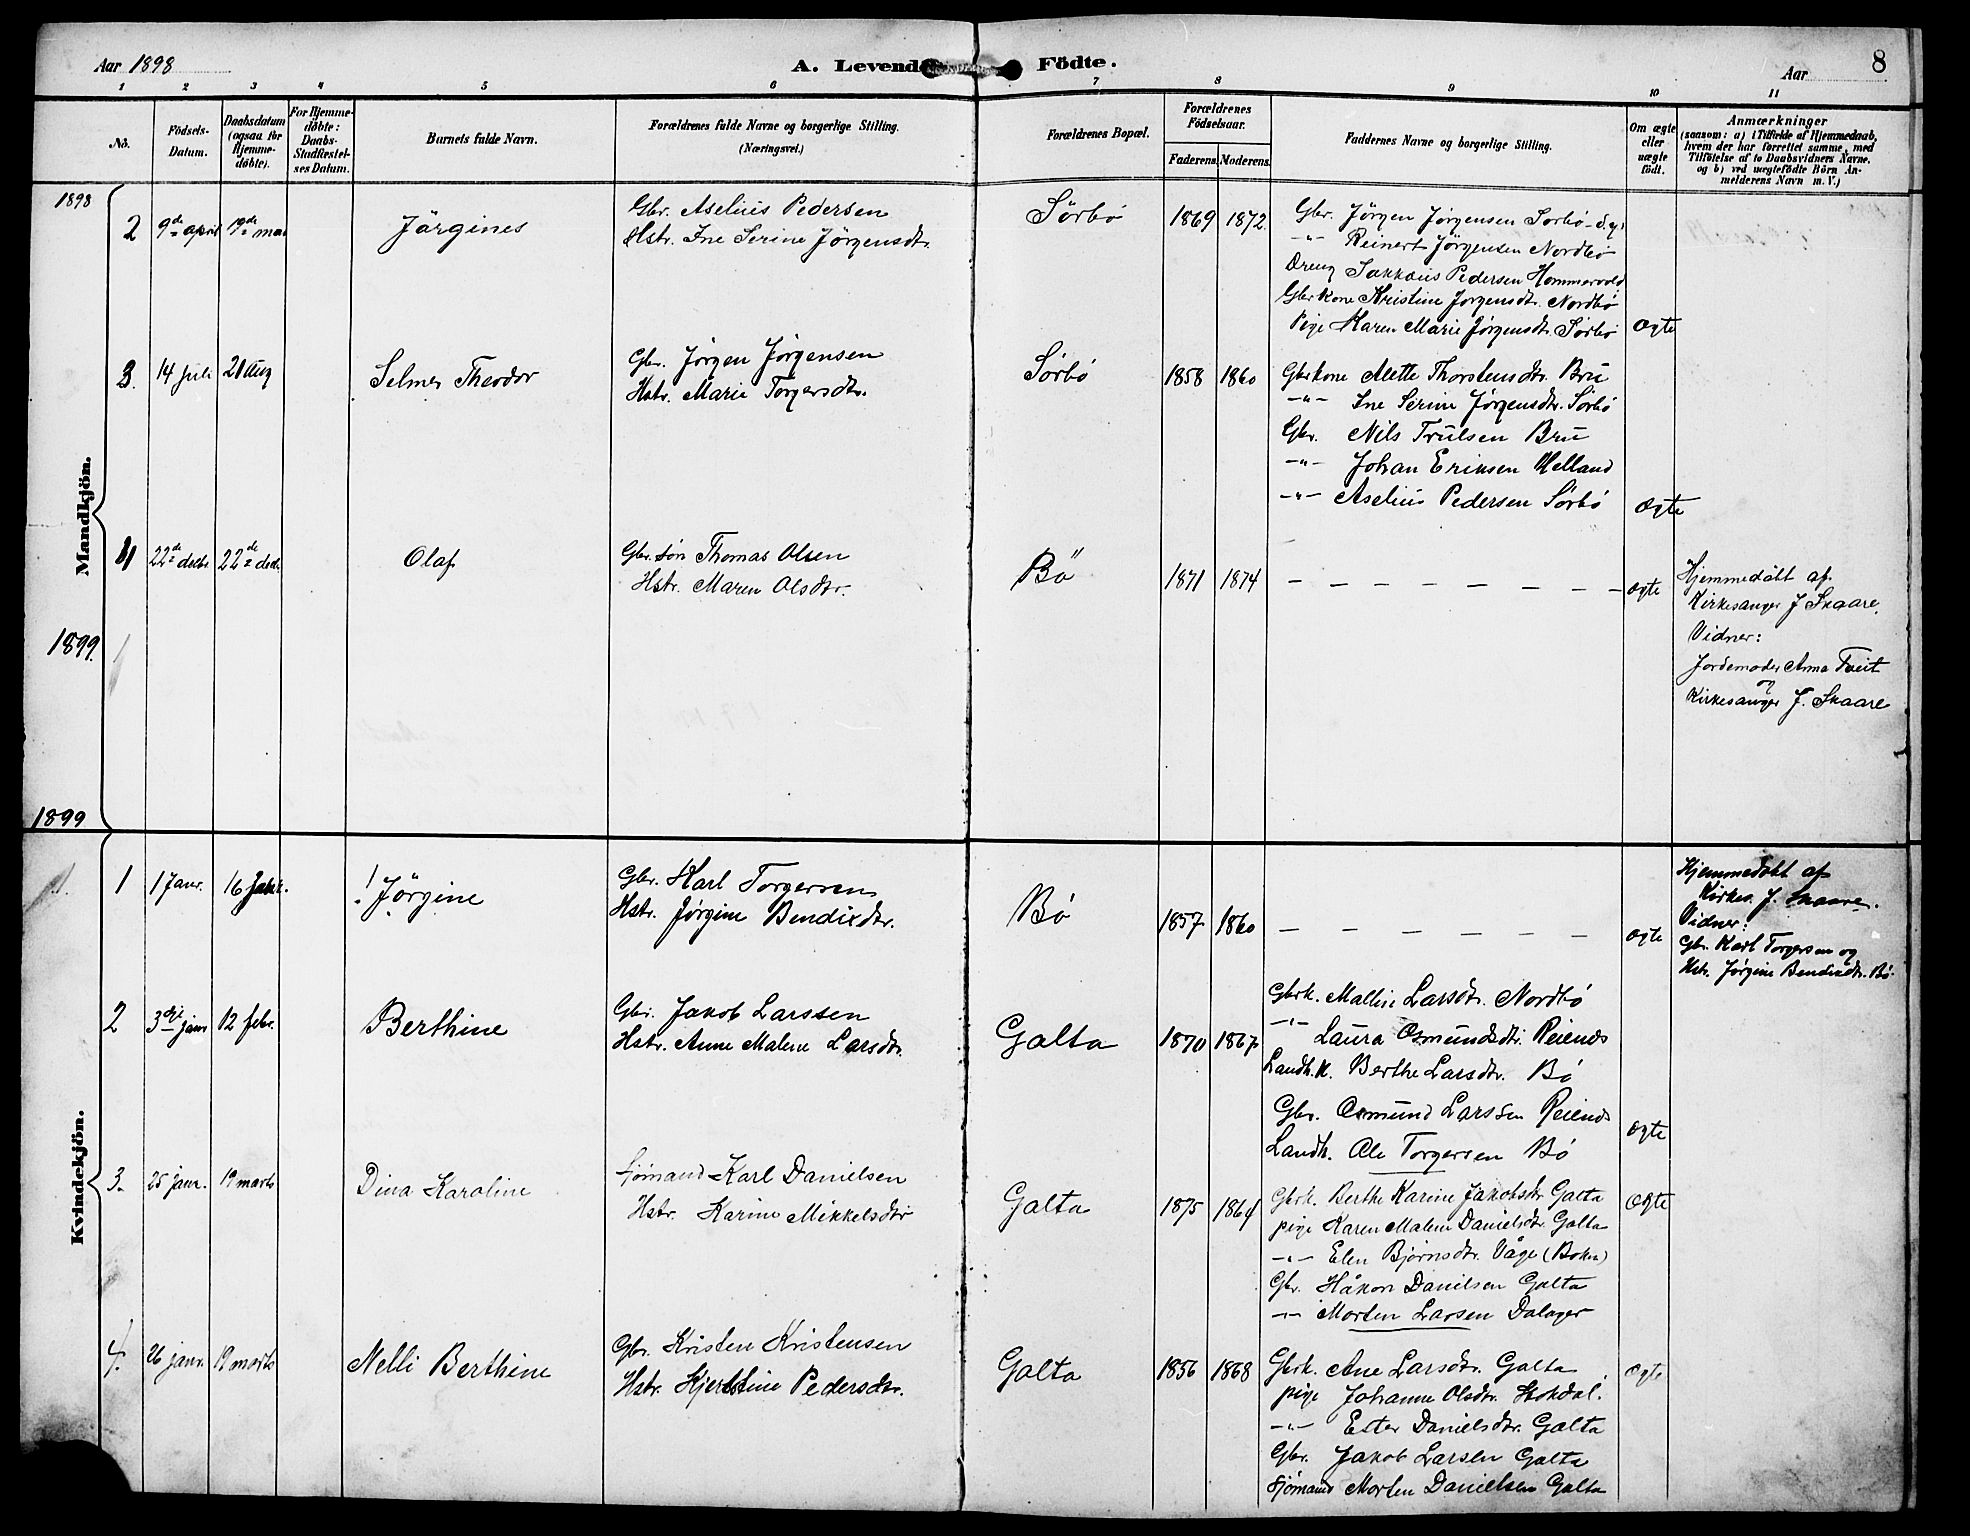 Aar 1898
A. Levende Födte.
Aar
8
1 2 3 4 5 6 7 8 9 10 11
No.
Födsels-Datum.
Daabsdatum (ogsaa for Hjemme-døbte).
For Hjemme-døbte: Daabs-Stadfæstel-ses Datum.
Barnets fulde Navn.
Forældrenes fulde Navne og borgerlige Stilling.
(Næringsvei.)
Forældrenes Bopæl.
Forældrenes Födselsaar.
Faderens. Moderens.
Faddernes Navne og borgerlige Stilling.
Om ægte eller uægte födt.
Anmærkninger
(saasom: a) i Tilfælde af Hjemmedaab,
hvem der har forrettet samme, med
Tilföielse af to Daabsvidners Navne.
og b) ved uægtefödte Börn An-
melderens Navn m. V.)
Mandkjön.
1898
2 9de april 19de mai Jörgines
Gbr. Aselius Pedersen
Hstr. Ine Serine Jörgensdtr.
Sörbö 1869 1872.
Gbr. Jørgen Jørgensen Sørbø
-"- Reinert Jörgensen Nordbø
Dreng Sakkæus Pedersen Hommervold
Gbrkone Kristine Jørgensdtr. Nordbø
Pige Karen Marie Jørgensdtr. Sørbø
ægte
3. 14 juli 21 Aug Selmer Theodor
Gbr. Jørgen Jørgensen
Hstr. Marie Torgersdtr.
Sørbø 1858 1860
Gbrkone Alette Thorstensdtr. Bru
-"- Ine Serine Jørgensdtr. Sørbø
Gbr. Nils Trulsen Bru
-"- Johan Eriksen Helland
-"- Aselius Pedersen Sørbø
ægte
4 22de decbr 22de dec. Olaf
Gbr. søn Thomas Olsen
Hstr. Maren Olsdtr.
Bö 1871 1874
— — — — — — — —
ægte
Hjemmedøbt af
Kirkesanger J Skaare.
Vidner:
Jordemoder Anna Tveit
og
Kirkesanger J. Skaare
1899
1899
Kvindekjön.
1 1 Janr. 16 Jørgine
Gbr. Karl Torgersen
Hstr. Jørgine Bendixdtr.
Bö 1857 1860
— — — — — —
ægte
Hjemmedøbt af
Kirkes. J. Skaare.
Vidner:
Gbr. Karl Torgersen og
Hstr. Jørgine Bendixdtr. Bö
2 3die janr 12 febr. Berthine
Gbr. Jakob Larssen
Hstr. Anne Malene Larsdtr.
Galta 1870 1867
Gbrk. Malline Larsdtr. Nordbø
-"- Laura Osmundsdtr. Reienes
Landh.k. Berthe Larsdtr. Bø
Gbr. Osmund Larssen Reienes
Landh. Ole Torgersen Bø
ægte
3. 25 janr. 19 marts Dina Karoline
Sjømand Karl Danielsen
Hstr. Karine Mikkelsdtr
Galta 1875 1864
Gbrk. Berthe Karine Jakobsdtr Galta
pige Karen Malene Danielsdtr. Galta
-"- Elen Bjørnsdtr. Våge (Bokn)
Gbr. Håkon Danielsen Galta
-"- Morten Larsen Dalager
ægte
4. 26 janr. 19 marts Nelli Berthine
Gbr. Kristen Kristensen
Hstr. Kjerstine Pedersdtr.
Galta 1856 1868
Gbrk. Ane Larsdtr. Galta
pige Johanne Olsdtr. Stokdal.
-"- Ester Danielsdtr. Galta
Gbr. Jakob Larsen Galta
Sjømand Morten Danielsen Galta
ægte